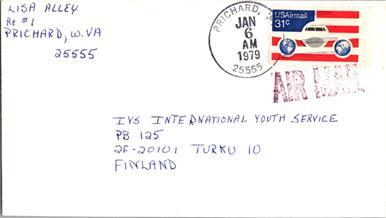 LISA ALLEY
Rt #1
PRICHARD, W.VA
25555
PRICHARD,
JAN
6
AM
1979
25555
USAirmail
31c
AIR MAIL
IYS INTERNATIONAL YOUTH SERVICE
PB 125
2F-20101 TURKU 10
FINLAND